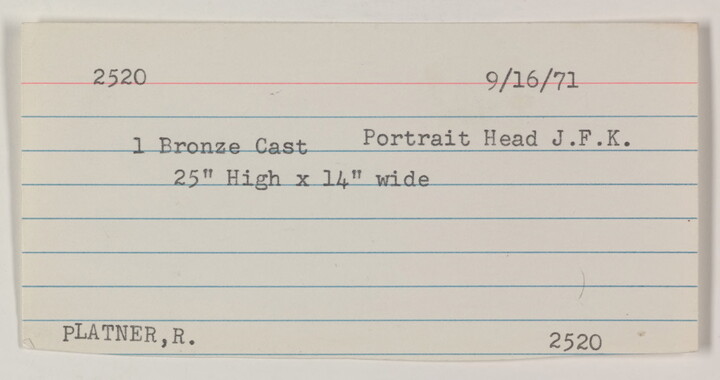 2520 9/16/71
1 Bronze Cast Portrait Head J.F.K.
25" High x 14" wide
PLATNER,R. 2520